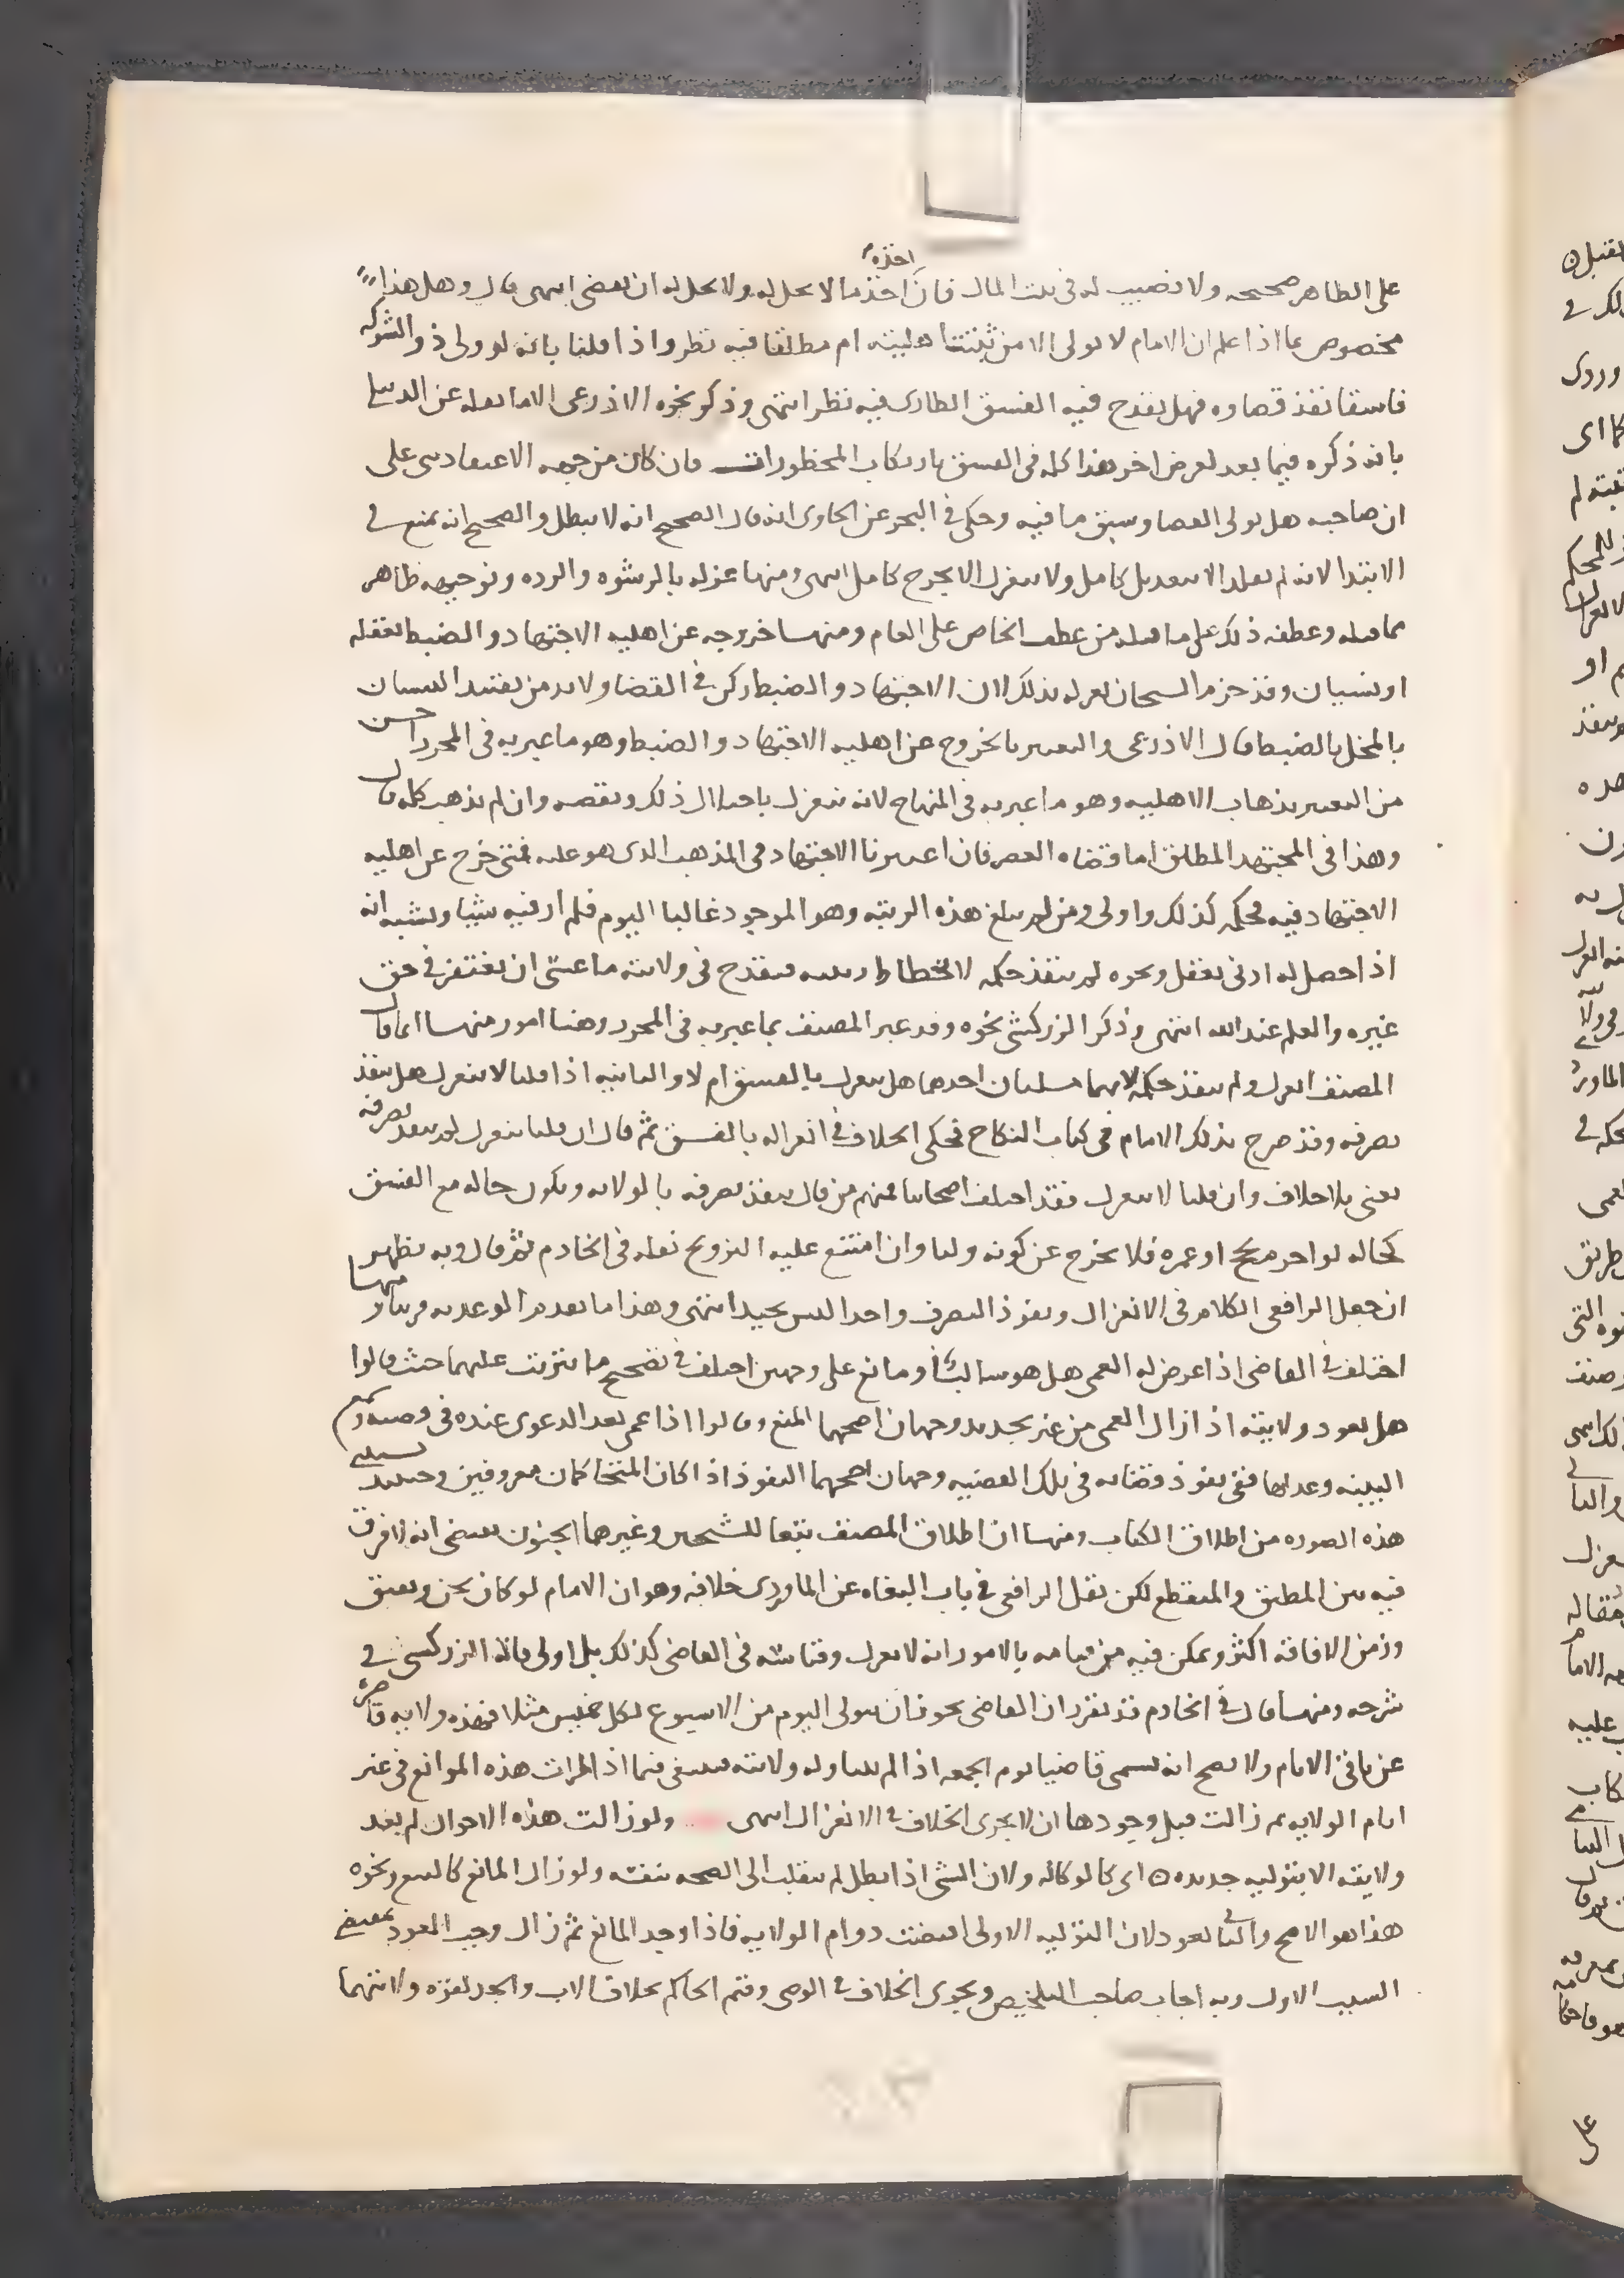 على الظاهر صحيحه ولا نصيب له في بيت المال فان اخذه اخذ ما لا يحل له ولا يحل له ان يقضي انتهى قال وهل هذا
مخصوص بما اذا علم ان الامام لا يولي الا من ثبتت اهليته ام مطلقا فيه نظر واذا قلنا بانه لو ولى ذو الشوكه
فاسقا نفذ قضاوه فهل يقدح فيه الفسق الطارى فيه نظر انتهى وذكر نحوه الاذرعي الا ما نقله عن الدبيلي
بانه ذكره فيما بعد لغرض اخر هذا كله في الفسق بارتكاب المحظورات فان كان من جهه الاعتقاد بني على
ان صاحبه هل يولى القضا وسبق ما فيه وحكى في البحر عن الحاوى انه قال الصحيح انه لا يبطل والصحيح انه يمنع في
الابتدا لانه لم يقلد الا بتعديل كامل ولا ينعزل الا بجرح كامل انتهى ومنها عزله بالرشوه والرده وتوجيهه ظاهر
مما قبله وعطفه ذلك على ما قبله من عطف الخاص على العام ومنها خروجه عن اهليه الاجتهاد والضبط لغفله
او نسيان وقد جزم الشيخان بعزله بذلك لان الاجتهاد والضبط ركن في القضا ولا بد من تقييد النسيان
بالمخل بالضبط قال الاذرعي والتعبير بالخروج عن اهليه الاجتهاد والضبط وهو ما عبر به في المحرر احسن
من التعبير بذهاب الاهليه وهو ما عبر به في المنهاج لانه ينعزل باختلال ذلك ونقصه وان لم يذهب كله قال
وهذا في المجتهد المطلق اما قضاه العصر فان اعتبرنا الاجتهاد في المذهب الذى هو عليه فمتى خرج عن اهليه
الاجتهاد فيه فحكمه كذلك واولى ومن لم يبلغ هذه الرتبه وهو الموجود غالبا اليوم فلم ار فيه شيا ويشبه انه
اذا حصل له ادنى تغفل ونحوه لم ينفذ حكمه لانحطاط رتبته فيقدح في ولايته ما عسى ان يغتفر في حق
غيره والعلم عند الله انتهى وذكر الزركشي نحوه وقد عبر المصنف بما عبر به في المحرر وهنا امور منها انما قال
المصنف انعزل ولم ينفذ حكمه لانهما مسلتان احدهما هل ينعزل بالفسق ام لا والثانيه اذا قلنا لا ينعزل هل ينفذ
تصرفه وقد صرح بذلك الامام في كتاب النكاح فحكى الخلاف في انعزاله بالفسق ثم قال ان قلنا ينعزل لم ينفذ تصرفه
يعني بلا خلاف وان قلنا لا ينعزل فقد اختلف اصحابنا فمنهم من قال ينفذ تصرفه بالولايه ويكون حاله مع الفسق
كحاله لو احرم بحج او عمره فلا يخرج عن كونه وليا وان امتنع عليه التزويج نقله في الخادم ثم قال وبه يظهر
ان جعل الرافعي الكلام في الانعزال ونفوذ التصرف واحدا ليس بجيد انتهى وهذا ما تقدم الوعد به قريبا ومنها
اختلف في القاضي اذا عرض له العمى هل هو سالب او مانع على وجهين اختلف في تصحيح ما يترتب عليهما حيث قالوا
هل تعود ولايته اذا زال العمى من غير تجديد وجهان اصحهما المنع وقالوا اذا عمى بعد الدعوى عنده في قضيه وسمع
البينه وعدلها ففي نفوذ قضائه في تلك القضيه وجهان اصحهما النفوذ اذا كان المتخاكمان معروفين وحينئذ تستثنى
هذه الصوره من اطلاق الكتاب ومنها ان اطلاق المصنف تبعا للشيخين وغيرهما الجنون يقتضي انه لا فرق
فيه بين المطبق والمنقطع لكن نقل الرافعي في باب البغاه عن الماوردى خلافه وهو ان الامام لو كان يجن ويفيق
وزمن الافاقه اكثر ويمكن فيه من قيامه بالامور انه لا ينعزل وقياسه في القاضي كذلك بل اولى قاله الزركشي في
شرحه ومنها قال في الخادم قد تقرر ان القاضي يجوز ان يتولى اليوم من الاسبوع لكل خميس مثلا فهذه ولايه قاصره
عن باقي الايام ولا يصح انه يسمى قاضيا يوم الجمعه اذا لم تتناوله ولايته فينبغي فيما اذا طرات هذه الموانع في غير
ايام الولايه ثم زالت قبل وجودها ان لا يجرى الخلاف في الانعزال انتهى ولو زالت هذه الاحوال لم تعد
ولايته الا بتوليه جديده ٥ اى كالوكاله ولان الشي اذا بطل لم ينقلب الى الصحه بنفسه ولو زال المانع كالبيع ونحوه
هذا هو الاصح والثاني تعود لان التوليه الاولى اقتضت دوام الولايه فاذا وجد المانع ثم زال وجب العود بمقتضى
السبب الاول وبه اجاب صاحب التلخيص ويجرى الخلاف في الوصي وقيم الحاكم بخلاف الاب والجد لقوه ولايتهما